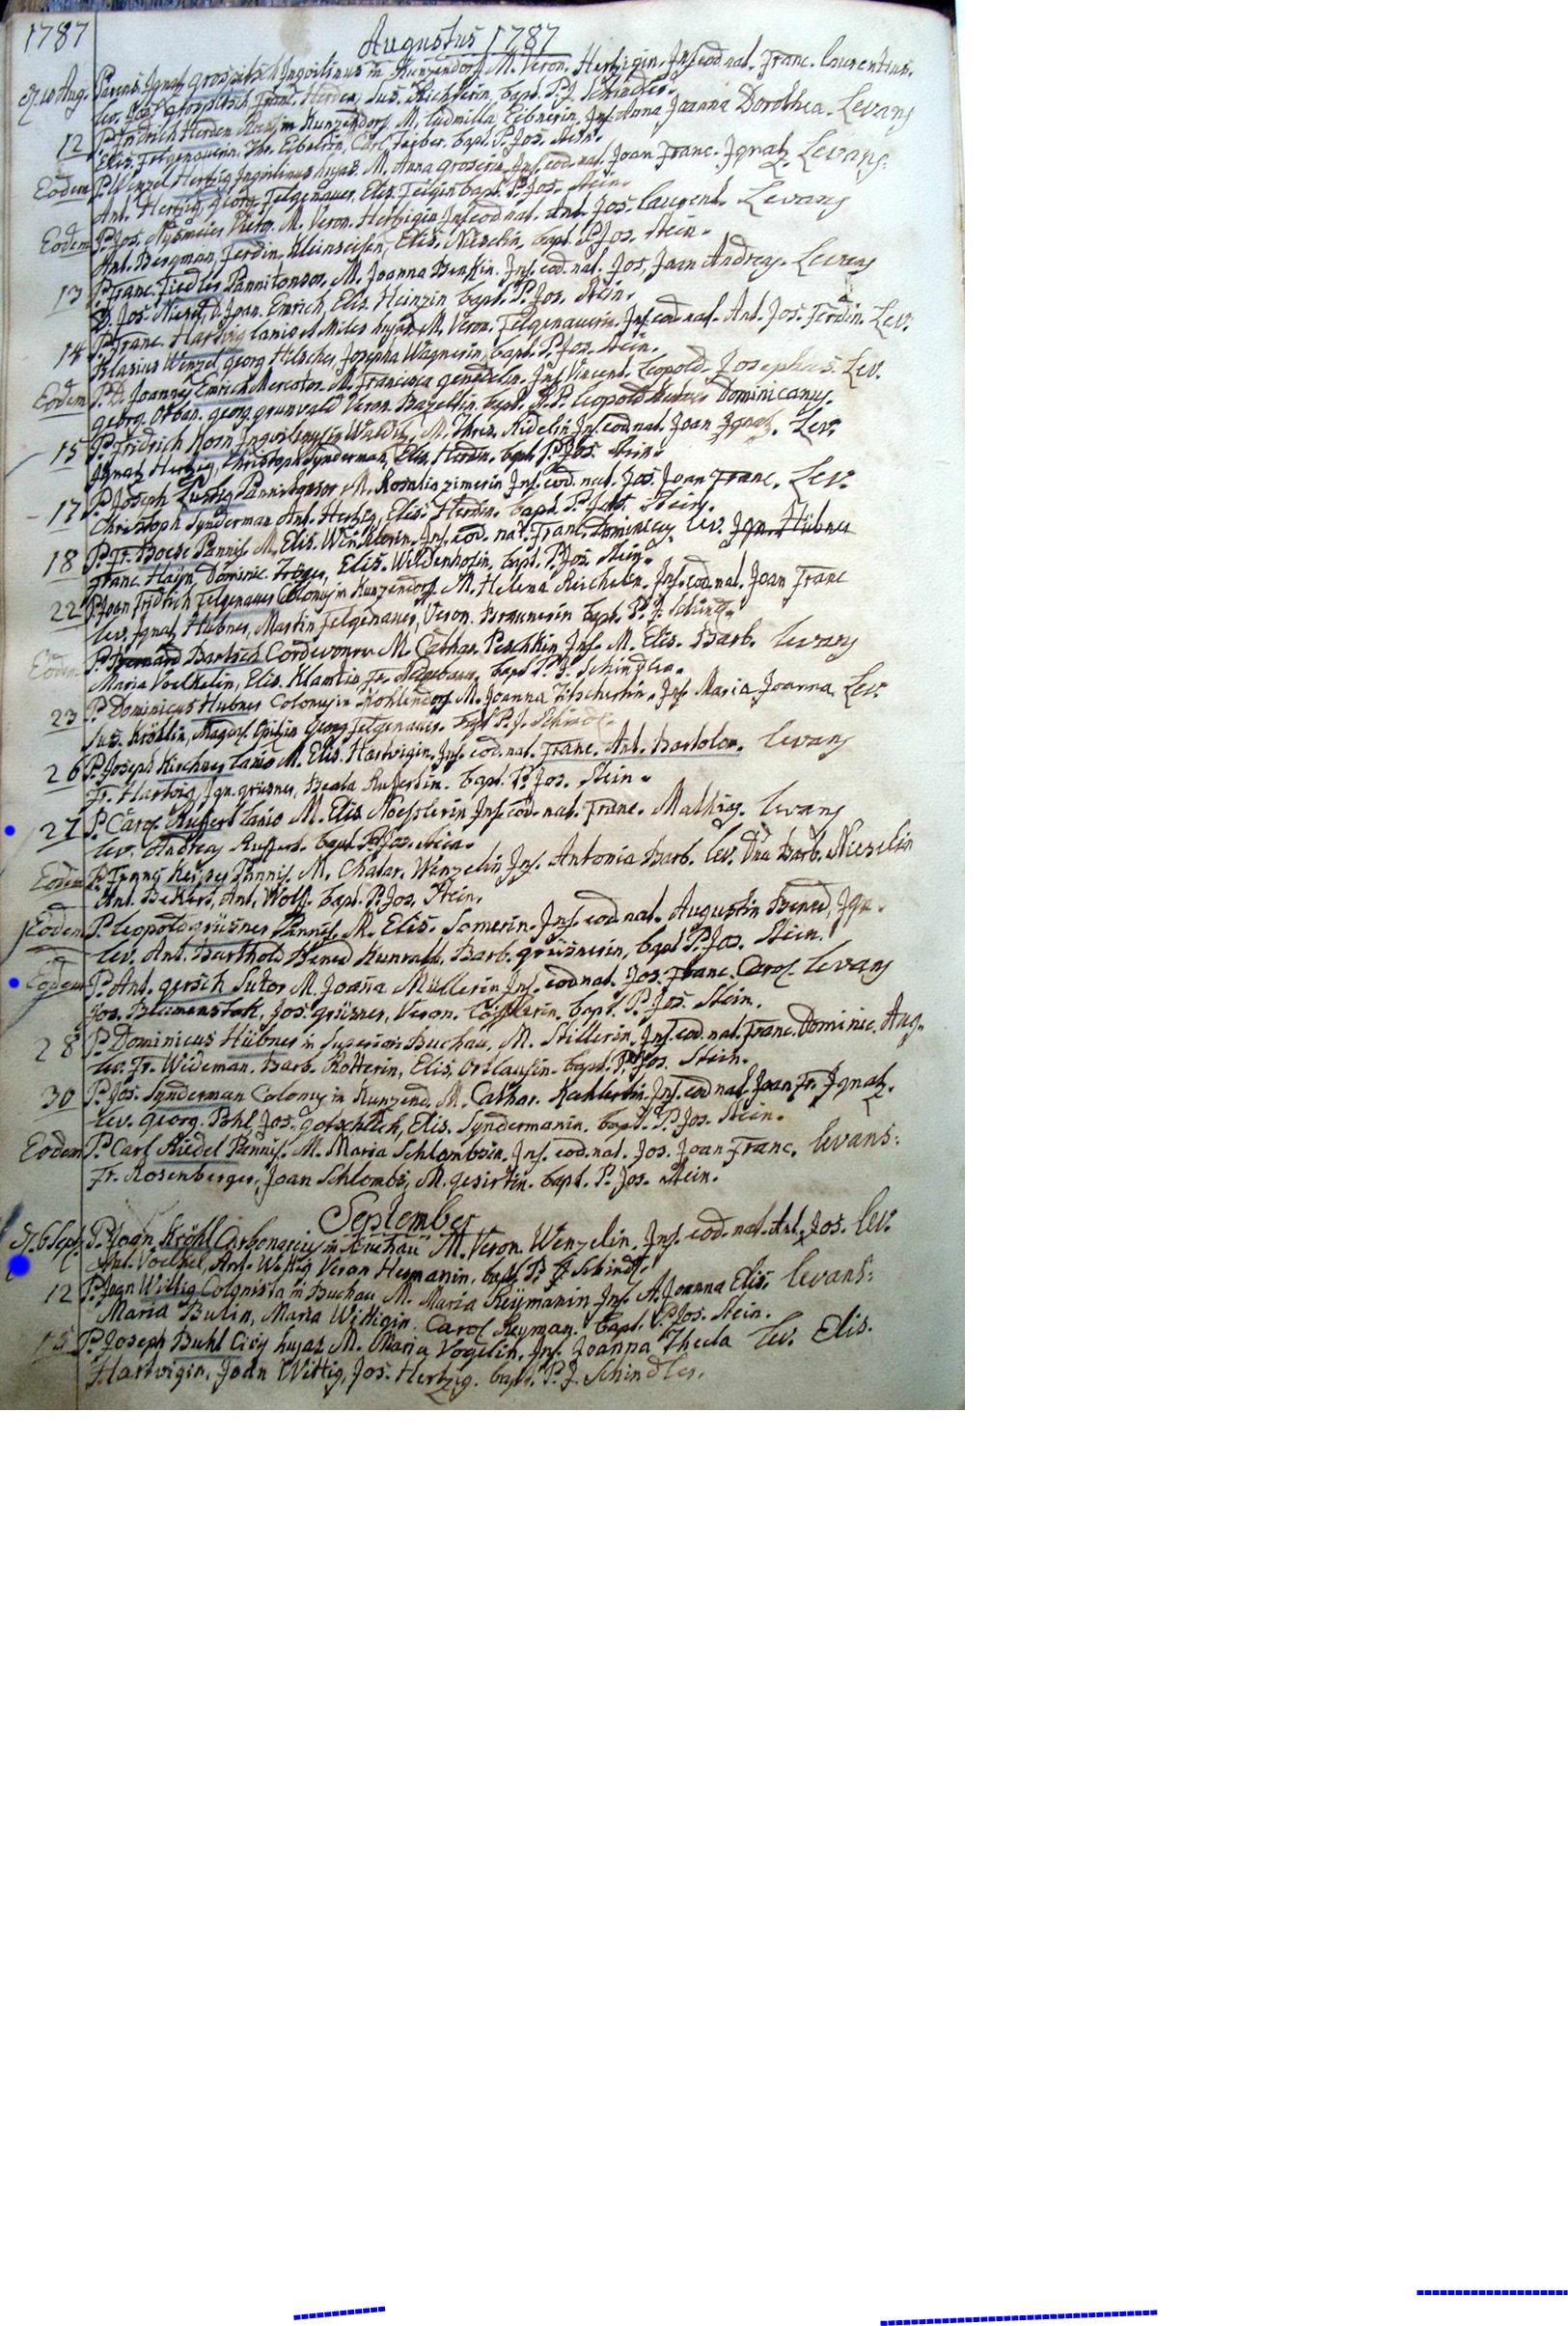 1787 Augustus 1787
d. 10 Aug. Parens Ignatz Inqvilinus in Kunzendorf M. Veron. Hertzigin. Inf. eod. nat. Franc. Laurentius.
lev. Franc. Herden, Sus. Richterin, bapt. P. J. Schindler.
12 P. Fridrich Herden in Kunzendorf M. Ludmilla Inf. Anna Joanna Dorothea. Levans
Elis. Felgenauerin, Carl bapt. P. Jos. Stein.
Eodem P. Wenzel Hertzig Inqvilinus hujas M. Anna Inf. eod. nat. Joan Franc. Ignatz. Levans:
Ant. Hertzig, Georg Felgenauer, Elis. bapt. P. Jos. Stein.
Eodem P. Jos. M. Veron. Inf. eod. nat. Ant. Jos. Laurent. Levans
Ant. Bergman, Ferdin. Kleineisen, Elis. Nieselin, bapt. P. Jos. Stein.
13 P. Franc. Fiedler Pannitonsor, M. Joanna Inf. eod. nat. Jos, Joan Andreas. Levans
D. Jos. Niesel, D. Joan. Emrich, Elis. Heinzin bapt. P. Jos. Stein.
14 P. Franc. Hartwig Lanio et Miles hujas M. Veron. Felgenauerin. Inf. eod. nat. Ant. Jos. Ferdin. Lev.
Blasius Wenzel, Georg Hilscher, Josepha Wagnerin, bapt. P. Jos. Stein.
Eodem P. D. Joannes Emrich Mercator M. Francisca Inf. Vincent. Leopold. Josephus. Lev.
Georg. Orban. Georg. Grunvald Veron. bapt. R. P. Leopold Dominicanus.
15 P. Fridrich Korn Inqvilinus in M. Theres. Inf. eod. nat. Joan Ignatz. Lev:
Ignatz Hertzig, Christoph Synderman, Elis. Herdin. bapt. P. Jos. Stein.
17 P. Joseph Lustig Pannitonsor M. Rosalia Zimerin Inf. eod. nat. Jos. Joan Franc. Lev.
Christoph Synderman Ant. Hertzig, Elis. Herdin. bapt. P. Jos. Stein.
18 P. Fr. Boese Pannif. M. Elis. Winklerin. Inf. eod. nat. Franc. Dominicus lev. Ign. Hübner
Franc. Hayn, Dominic. Tröger, Elis. Wildenhofin, bapt. P. Jos. Stein.
22 P. Joan Fridrich Felgenauer Colonus in Kunzendorf M. Helena Reichelin. Inf. eod. nat. Joan Franc
lev. Ignatz Hübner, Martin Felgenauer, Veron. Braunerin bapt. P. J. Schind.
Eodem P. Bernard Bartsch M. Cathar. Peschkin Inf. M. Elis. Barb. Levans
Maria Voelkelin, Elis. Fr. bapt. P. J. Schindler.
23 P. Dominicus Hubner Colonus in Kohlendorf M. Joanna Inf. Maria Joanna. Lev.
Sus. Georg Felgenauer. bapt. P. J. Schindl.
26 P. Joseph Kirchner Lanio M. Elis. Hartwigin. Inf. eod. nat. Franc. Ant. Bartolom. Levans
Fr. Hartwig, Ign. Grüsner, Beata Rufertin. bapt. P. Jos. Stein.
27 P. Carol. Ruffert Lanio M. Elis Noesslerin Inf. eod. nat. Franc. Mathias. Levans
lev. Andreas Ruffert. bapt. P. Jos. Stein.
Eodem P. Franz Pannif. M. Chatar. Wenzelin Inf. Antonia Barb. lev. Dna Barb. Nieselin
Ant. Bekert, Ant. Wolf. bapt. P. Jos. Stein.
Eodem P. Leopold Grüsner Pannif. M. Elis. Somerin. Inf. eod. nat. Augustin Bened, Ign.
lev. Ant. Barthold Bened Kunradt, Barb. Grüsnerin, bapt. P. Jos. Stein.
Eodem P. Ant. Gersch Sutor M. Joana Müllerin Inf. eod. nat. Jos. Franc. Carol. Levans
Jos. Blumenstok, Jos. Grüsner, Veron. bapt. P. Jos. Stein.
28 P. Dominicus Hübner in Superiori Buchau, M. Stillerin, Inf. eod. nat. Franc. Dominic. Aug.
lev. Fr. Wideman. Barb. Rotterin, Elis, bapt. P. Jos. Stein.
30 P. Jos. Synderman Colonus in Kunzend. M. Cathar. Kahlertin, Inf. eod. nat. Joan Fr. Ignatz.
lev. Georg. Pohl, Jos. Gotschlich, Elis. Syndermanin. bapt. P. Jos. Stein.
Eodem P. Carl Riedel Pannif. M. Maria Schlombsin. Inf. eod. nat. Jos. Joan Franc. Levans:
Fr. Rosenberger, Joan Schlombs, M. bapt. P. Jos. Stein.
September
d. 6 Sept. P. Joan Kröhl Carbonarius in Buchau M. Veron. Wenzelin. Inf. eod. nat. Ant. Jos. lev.
Ant. Voelkel, Ant. Wittig Veron Hermanin, bapt. P. J. Schindl.
12 P. Joan Wittig Colonista in Buchau M. Maria Reÿmanin Inf. A. Joanna Elis. Levans:
Maria Bulin, Maria Wittigin. Carol Reyman. bapt. P. Jos. Stein.
15 P. Joseph Buhl Civis hujas M. Maria Vogelin, Inf. Joanna Thecla lev. Elis.
Hartwigin, Joan Wittig, Jos. Hertzig. bapt. P. J. Schindler.